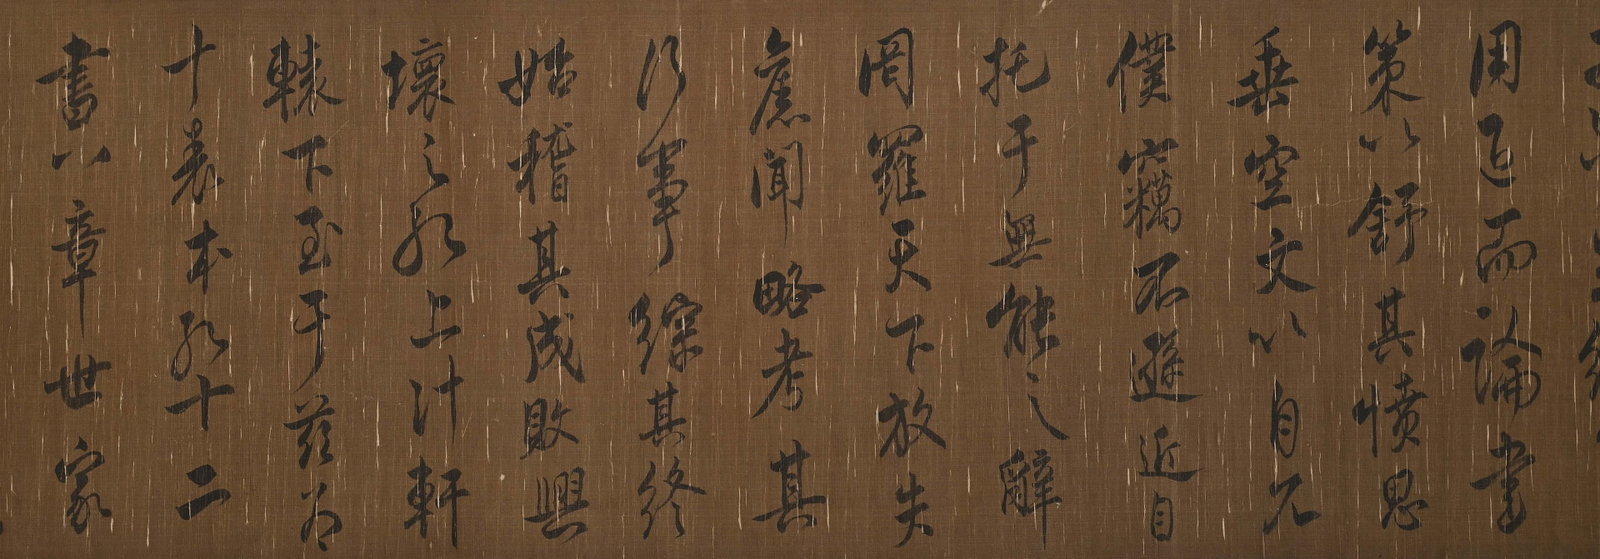 用退而論書
策以舒其憤思
垂空文以自見
僕竊不遜近自
托于無能之辭
罔羅天下放失
舊聞略考其
行事綜其終
始稽其成敗興
壞之紀上計軒
轅下至于茲為
十表本紀十二
書八章世家